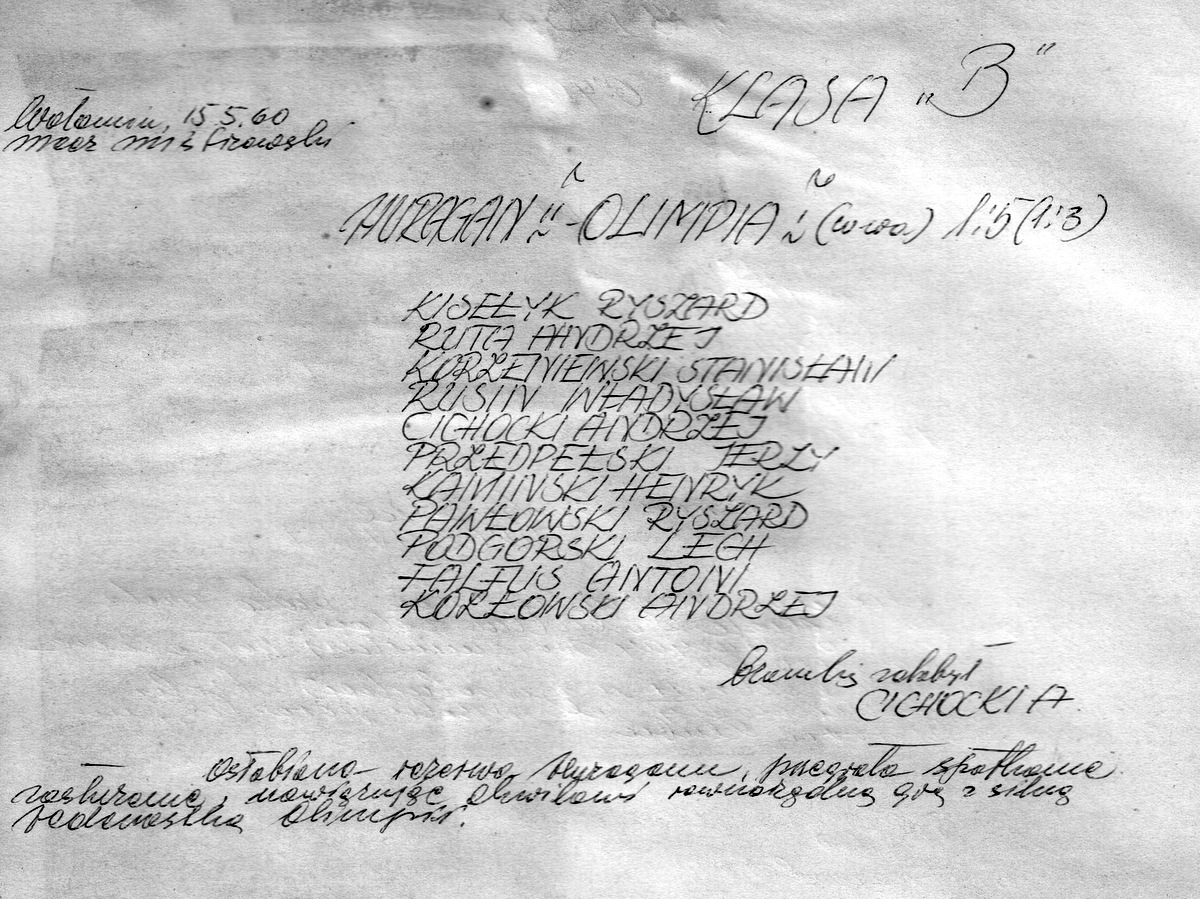 KLASA „B"
Wołomin, 15.5.60
mecz mistrzowski
HURAGAN II - OLIMPIA II (W-wa) 1:5 (1:3)
KISEŁYK RYSZARD
RUTA ANDRZEJ
KORZENIEWSKI STANISŁAW
RUSIN WŁADYSŁAW
CICHOCKI ANDRZEJ
PRZEDPEŁSKI JERZY
KAMINSKI HENRYK
PAWŁOWSKI RYSZARD
PODGORSKI LECH
FALFUS ANTONI
KOZŁOWSKI ANDRZEJ
Bramkę zdobył
CICHOCKI A.
Osłabiona rezerwa Huraganu, przegrała spotkanie
zasłużenie, nawiązując chwilami równorzędną grę z silną
jedenastką Olimpii.